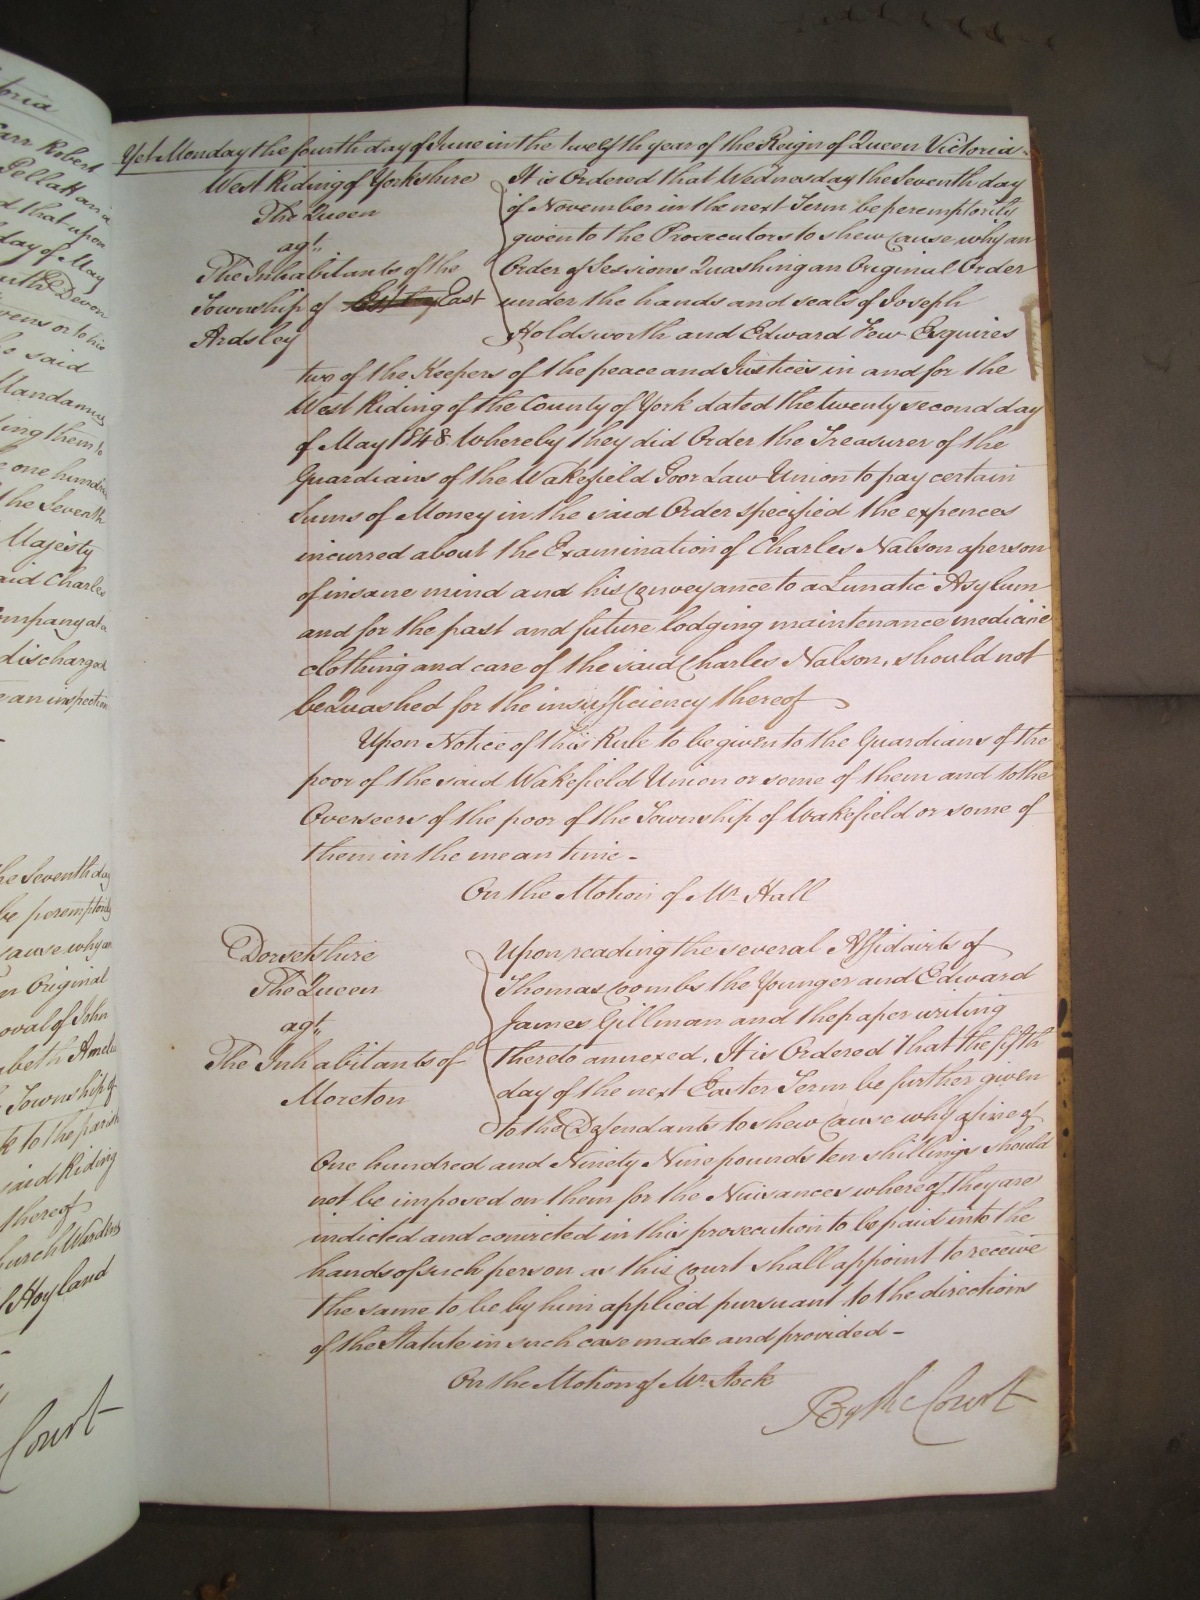 Yet Monday the fourth day of June in the twelfth year of the Reign of Queen Victoria
West Riding of Yorkshire
The Queen
agt.
The Inhabitants of the
Township of East
Ardsley
It is Ordered that Wednesday the Seventh day
of November in the next Term be peremptorily
given to the Prosecutors to shew cause why an
Order of Sessions Quashing an Original Order
under the hands and seals of Joseph
Holdsworth and Edward Tew Esquires
two of the Keepers of the peace and Justices in and for the
West Riding of the County of York dated the twenty second day
of May 1848 Whereby they did Order the Treasurer of the
Guardians of the Wakefield Poor Law Union to pay certain
Sums of Money in the said Order specified the expences
incurred about the Examination of Charles Nalson a person
of insane mind and his conveyance to a Lunatic Asylum
and for the past and future lodging maintenance medicine
clothing and care of the said Charles Nalson, should not
be Quashed for the insufficiency thereof
Upon Notice of this Rule to be given to the Guardians of the
poor of the said Wakefield Union or some of them and to the
Overseers of the poor of the Township of Wakefield or some of
them in the mean time -
On the Motion of Mr. Hall
Dorsetshire
The Queen
agt.
The Inhabitants of
Moreton
Upon reading the several Affidavits of
Thomas Coombs the Younger and Edward
James Gillman and the paper writing
thereto annexed, It is Ordered That the fifth
day of the next Easter Term be further given
to the Defendants to shew cause why a fine of
One hundred and Ninety Nine pounds ten shillings should
not be imposed on them for the Nuisances whereof they are
indicted and convicted in this prosecution to be paid into the
hands of such person as this Court shall appoint to receive
the same to be by him applied pursuant to the directions
of the Statute in such case made and provided -
On the Motion of Mr. Stock
By the Court